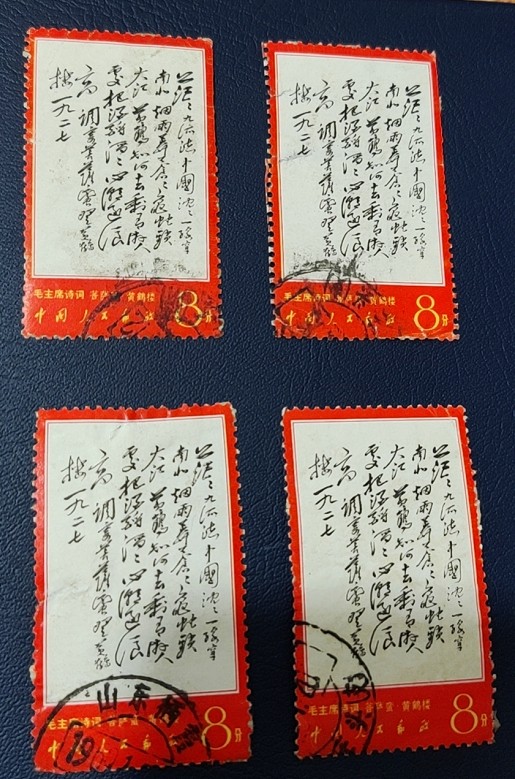 茫茫九派流中國沈沈一線穿
南北烟雨莽蒼蒼龜蛇鎖
大江黄鶴知何去剩有遊人
處把酒酹滔滔心潮逐浪
高 調寄菩薩蛮登黄鶴
楼 一九二七
毛主席诗词 菩萨蛮·黄鹤楼
中国人民邮政 8分
茫茫九派流中國沈沈一線穿
南北烟雨莽蒼蒼龜蛇鎖
大江黄鶴知何去剩有遊人
處把酒酹滔滔心潮逐浪
高 調寄菩薩蛮登黄鶴
楼 一九二七
毛主席诗词 菩萨蛮·黄鹤楼
中国人民邮政 8分
茫茫九派流中國沈沈一線穿
南北烟雨莽蒼蒼龜蛇鎖
大江黄鶴知何去剩有遊人
處把酒酹滔滔心潮逐浪
高 調寄菩薩蛮登黄鶴
楼 一九二七
山东栖
毛主席诗词 菩萨蛮
中国人民邮政 8分
19
茫茫九派流中國沈沈一線穿
南北烟雨莽蒼蒼龜蛇鎖
大江黄鶴知何去剩有遊人
處把酒酹滔滔心潮逐浪
高 調寄菩薩蛮登黄鶴
楼 一九二七
毛主席诗词 菩萨蛮·黄鹤楼
中国人民邮政 8分